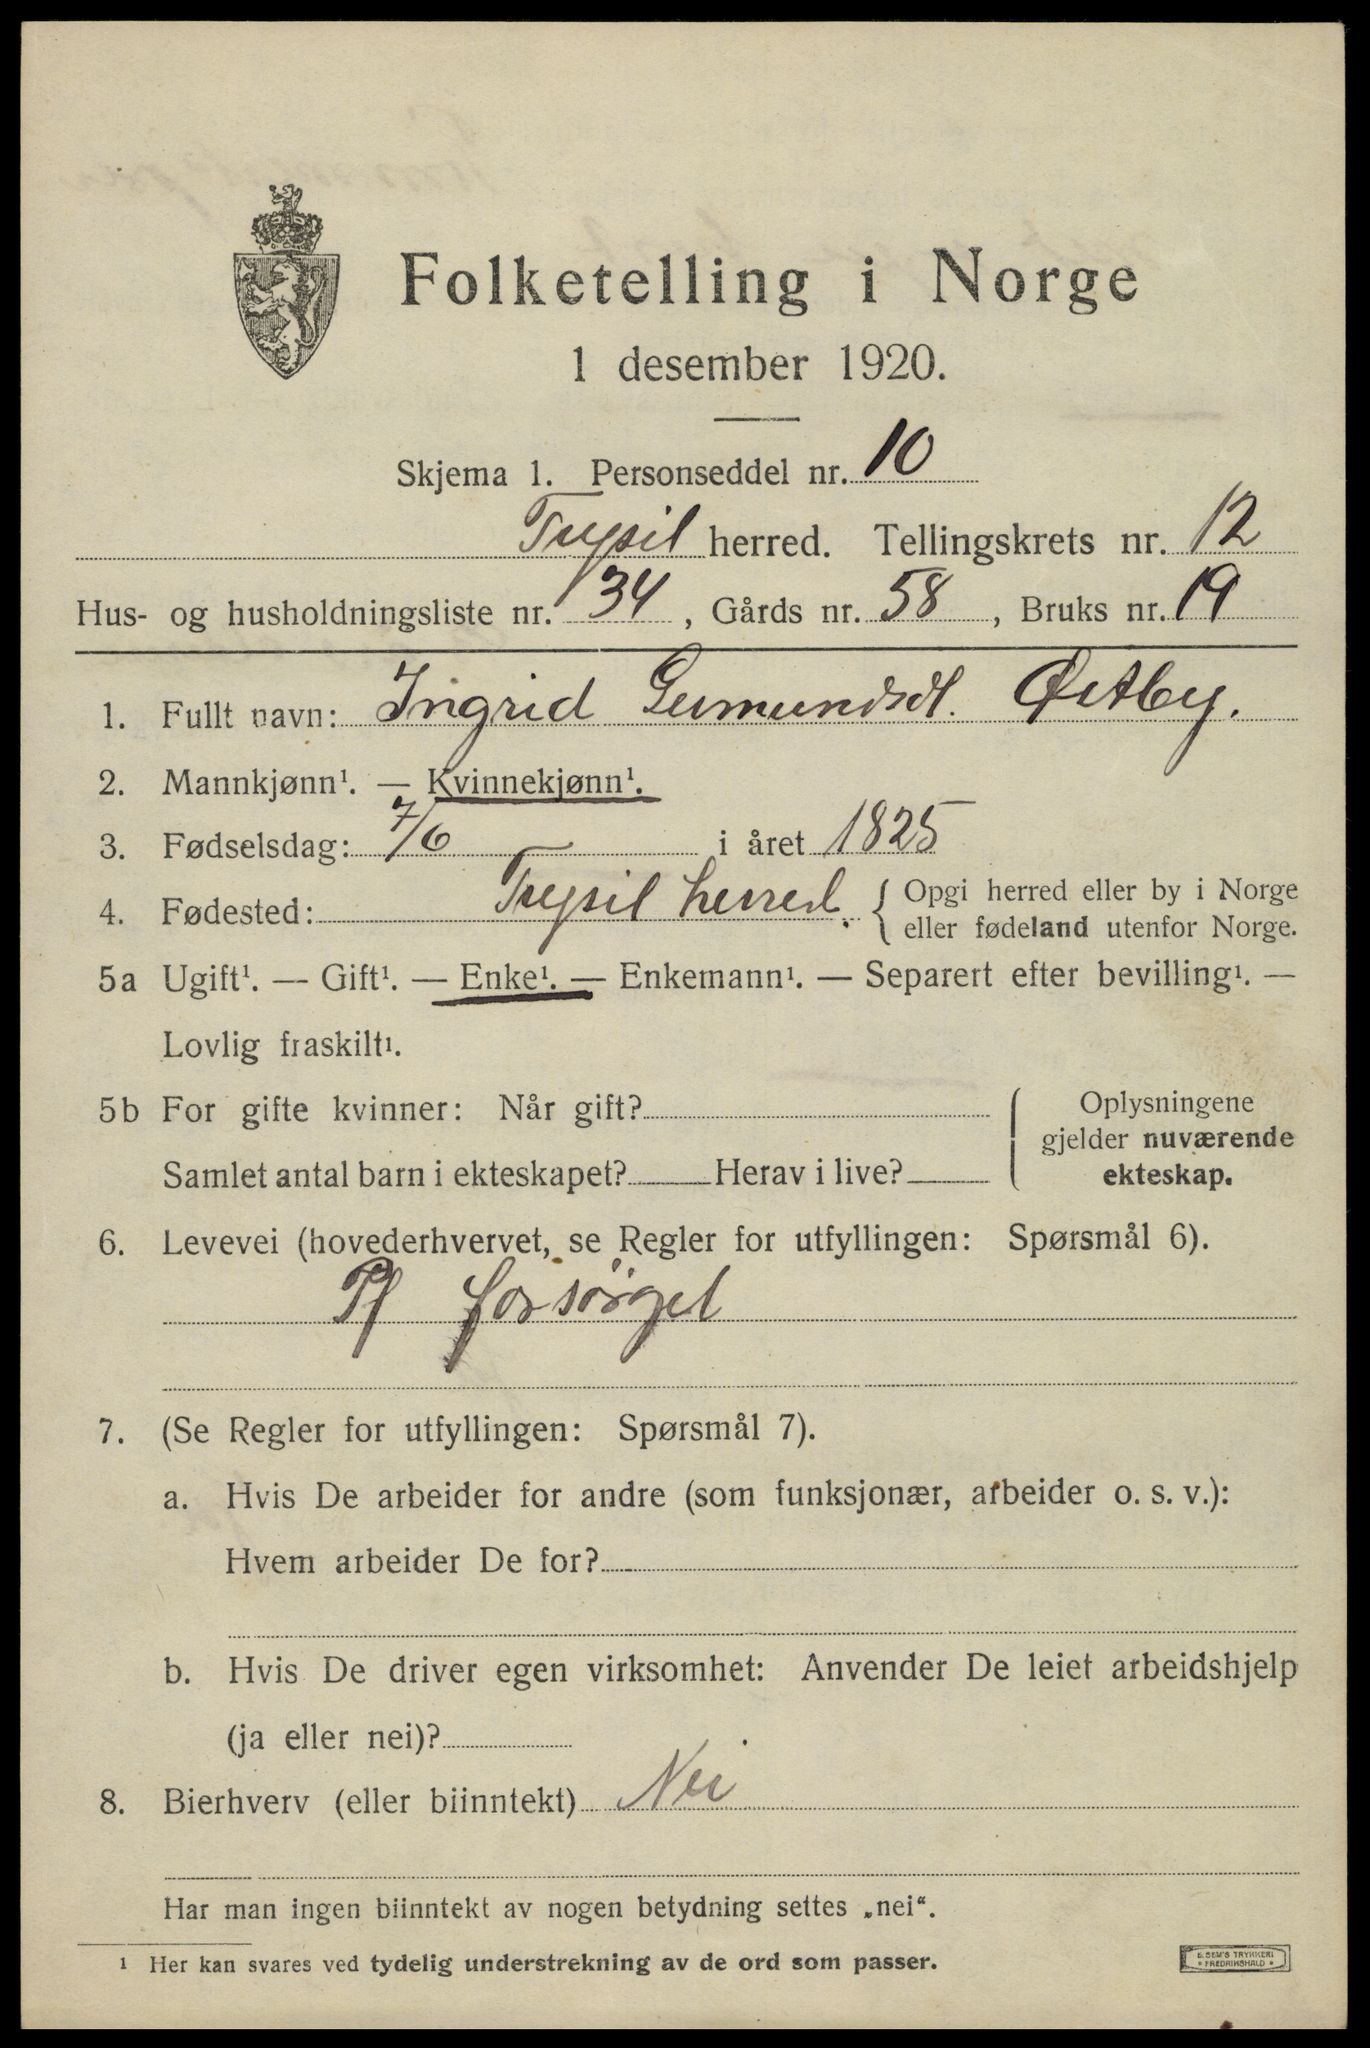 Folketelling i Norge
1 desember 1920.
Skjema 1. Personseddel nr. 10
Trysil herred. Tellingskrets nr. 12
Hus- og husholdningsliste nr. 34, Gårds nr. 58, Bruks nr. 19
1. Fullt navn: Ingrid Gumundsdt. Østby.
2. Mannkjønn¹. — Kvinnekjønn¹.
3. Fødselsdag: 7/6 i året 1825
4. Fødested: Trysil herred. { Opgi herred eller by i Norge
eller fødeland utenfor Norge.
5a Ugift¹. — Gift¹. — Enke¹. — Enkemann¹. — Separert efter bevilling¹. —
Lovlig fraskilt¹.
5b For gifte kvinner: Når gift? Oplysningene
gjelder nuværende
Samlet antal barn i ekteskapet? Herav i live? ekteskap.
6. Levevei (hovederhvervet, se Regler for utfyllingen: Spørsmål 6).
Pf forsørget
7. (Se Regler for utfyllingen: Spørsmål 7).
a. Hvis De arbeider for andre (som funksjonær, arbeider o. s. v.):
Hvem arbeider De for?
b. Hvis De driver egen virksomhet: Anvender De leiet arbeidshjelp
(ja eller nei)?
8. Bierhverv (eller biinntekt) Nei
Har man ingen biinntekt av nogen betydning settes „nei“.
¹ Her kan svares ved tydelig understrekning av de ord som passer.
E. SEM'S TRYKKERI
* FREDRIKSHALD *